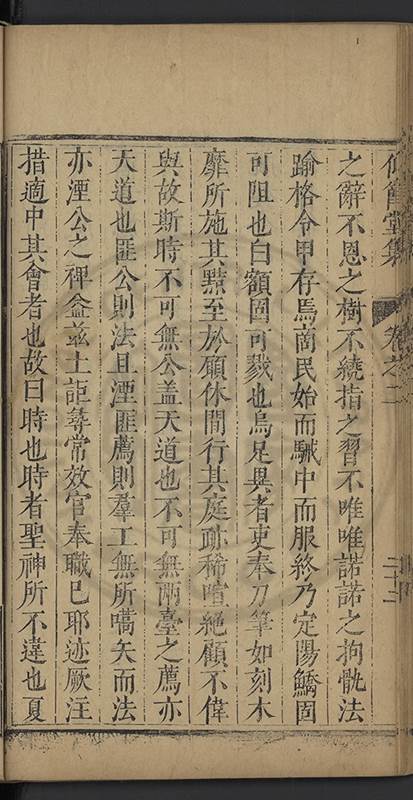 仰節堂集 卷之二
之辭不恩之樹不繞指之習不唯唯諾諾之拘骩法
踰格令甲存焉商民始而駴中而服終乃定陽鱎固
可阻也白額固可戮也烏足異者吏奉乃筆如刻木
靡所施其黠至於顧休閒行其庭跡稀喧絕顧不偉
與故斯時不可無公蓋天道也不可無兩臺之薦亦
天道也匪公則法且湮匪薦則羣工無所嚆矢而法
亦湮公之裨益茲土詎尋常效官奉職已耶迹厥注
措適中其會者也故曰時也時者聖神所不違也夏